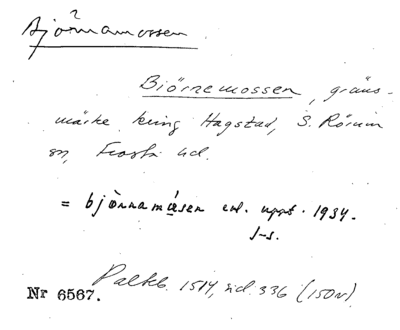 ?
Björnamossen
Biörnemossen, gräns-
märke kring Hagstad, S. Rörum
sn, Frosta hd.
= bjò̀rnamǻsen enl. uppt. 1934.
J-s.
Palteb. 1514, sid. 336 (150v)
Nr 6567.